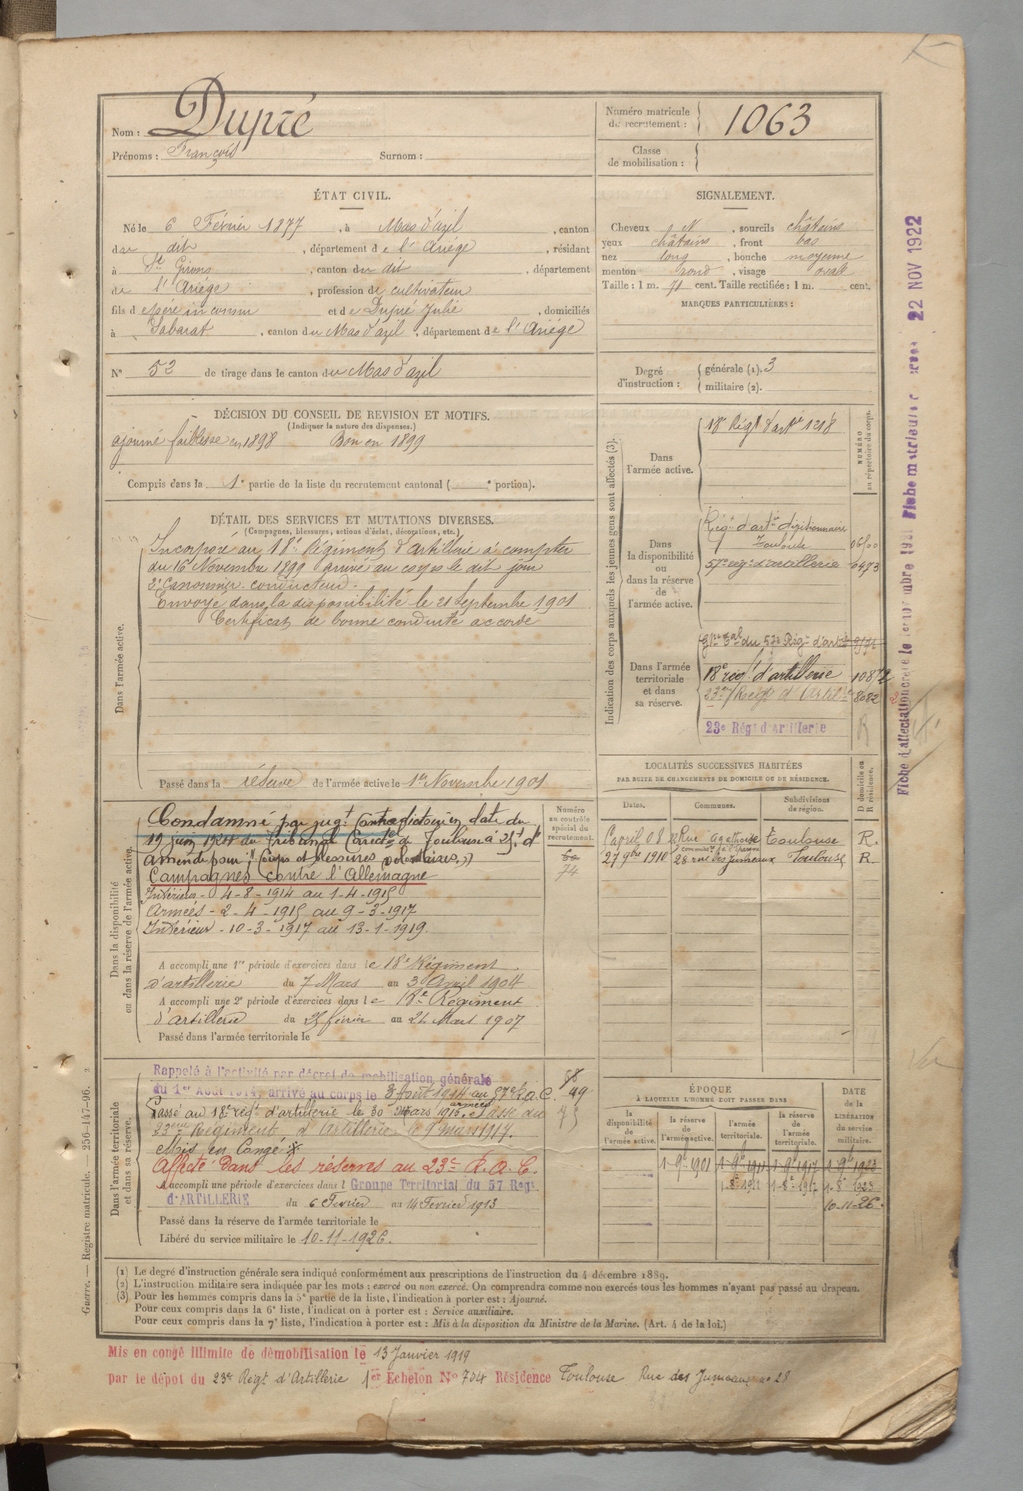 Nom : Dupré
Prénoms : François Surnom :
Numéro matricule de recrutement : 1063
Classe de mobilisation :
ÉTAT CIVIL.
Né le 6 Février 1877, à Mas d'azil, canton
du dit, département de l'Ariège, résidant
à St Girons, canton du dit, département
de l'Ariège, profession de cultivateur
fils de père inconnu et de Dupré Julie, domiciliés
à Sabarat, canton du Mas d'azil, département de l'Ariège
SIGNALEMENT.
Cheveux N, sourcils châtains
yeux châtains, front bas
nez long, bouche moyenne
menton rond, visage ovale
Taille : 1 m. 71 cent. Taille rectifiée : 1 m. cent.
MARQUES PARTICULIÈRES :
N° 53 de tirage dans le canton du Mas d'azil
Degré d'instruction : générale (1). 3
militaire (2).
DÉCISION DU CONSEIL DE REVISION ET MOTIFS.
(Indiquer la nature des dispenses.)
ajourné faiblesse en 1898 Bon en 1899
Compris dans la 1e partie de la liste du recrutement cantonal ( e portion).
DÉTAIL DES SERVICES ET MUTATIONS DIVERSES.
(Campagnes, blessures, actions d'éclat, décorations, etc.)
Dans l'armée active.
Incorporé au 18e Régiment d'artillerie à compter
du 16 Novembre 1899 arrivé au corps le dit jour
2e Canonnier conducteur.
Envoyé dans la disponibilité le 21 Septembre 1901
Certificat de bonne conduite accordé
Passé dans la réserve de l'armée active le 1er Novembre 1901
Indication des corps auxquels les jeunes gens sont affectés (3).
NUMÉRO au répertoire du corps.
Dans l'armée active.
18e Régt d'artie 1218
Dans la disponibilité ou dans la réserve de l'armée active.
Régt d'artie divisionnaire
Toulouse
57e rég. d'artillerie 6473
Dans l'armée territoriale et dans sa réserve.
gpe tal du 57e Régt d'artie
18e régt d'artillerie
23e Régt d'Artie 8682
23e Régt d'Artillerie
R
Fiche matricule
22 NOV 1922
Dans la disponibilité ou dans la réserve de l'armée active.
Condamné par jugt Contradictoire en date du
Tribunal Correctel de Toulouse à 25f d'
amende pour "Coups et blessures volontaires"
Campagnes contre l'Allemagne
Intérieur - 4-8-1914 au 1-4-1915
Armées - 2-4-1915 au 9-3-1917
Intérieur - 10-3-1917 au 13-1-1919.
A accompli une 1re période d'exercices dans le 18e Régiment
d'artillerie du 7 Mars au 3 Avril 1904
A accompli une 2e période d'exercices dans le 18e Régiment
d'artillerie du 25 février au 24 Mars 1907
Passé dans l'armée territoriale le
Numéro au contrôle spécial du recrutement.
74
LOCALITÉS SUCCESSIVES HABITÉES
PAR SUITE DE CHANGEMENTS DE DOMICILE OU DE RÉSIDENCE.
Dates. Communes. Subdivisions de région. D domicile ou R résidence.
avril 08 Rue Agathoise Toulouse R.
27 9bre 1910 28 rue des Jumeaux Toulouse R.
Dans l'armée territoriale et dans sa réserve.
Rappelé à l'activité par décret de mobilisation générale
du 1er Août 1914 arrivé au corps le 3 Août 1914 au 57e R.A.C.
Passé au 18e régt d'artillerie le 30 Mars 1915. Passé au
23eme Régiment d'Artillerie le 9 mars 1917.
Mis en Congé
Affecté dans les réserves au 23e R.A.C.
A accompli une période d'exercices dans l Groupe Territorial du 57 Régt
d'ARTILLERIE du 6 Février au 14 Février 1913
Passé dans la réserve de l'armée territoriale le
Libéré du service militaire le 10-11-1926.
ÉPOQUE
À LAQUELLE L'HOMME DOIT PASSER DANS
la disponibilité de l'armée active. la réserve de l'armée active. l'armée territoriale. la réserve de l'armée territoriale. DATE de la LIBÉRATION du service militaire.
1-9e 1901 1-9e 1911 1-9e 1917 1-9e 1923
1-8e 1911 1-8e 1917 1-8e 1923
10-11-26.
(1) Le degré d'instruction générale sera indiqué conformément aux prescriptions de l'instruction du 4 décembre 1889.
(2) L'instruction militaire sera indiquée par les mots : exercé ou non exercé. On comprendra comme non exercés tous les hommes n'ayant pas passé au drapeau.
(3) Pour les hommes compris dans la 5e partie de la liste, l'indication à porter est : Ajourné.
Pour ceux compris dans la 6e liste, l'indication à porter est : Service auxiliaire.
Pour ceux compris dans la 7e liste, l'indication à porter est : Mis à la disposition du Ministre de la Marine. (Art. 4 de la loi.)
Guerre. — Registre matricule. 256-147-96.
Mis en congé illimité de démobilisation le 13 Janvier 1919
par le dépôt du 23e Régt d'Artillerie 1er Echelon N° 704 Résidence Toulouse Rue des Jumeaux, no 28